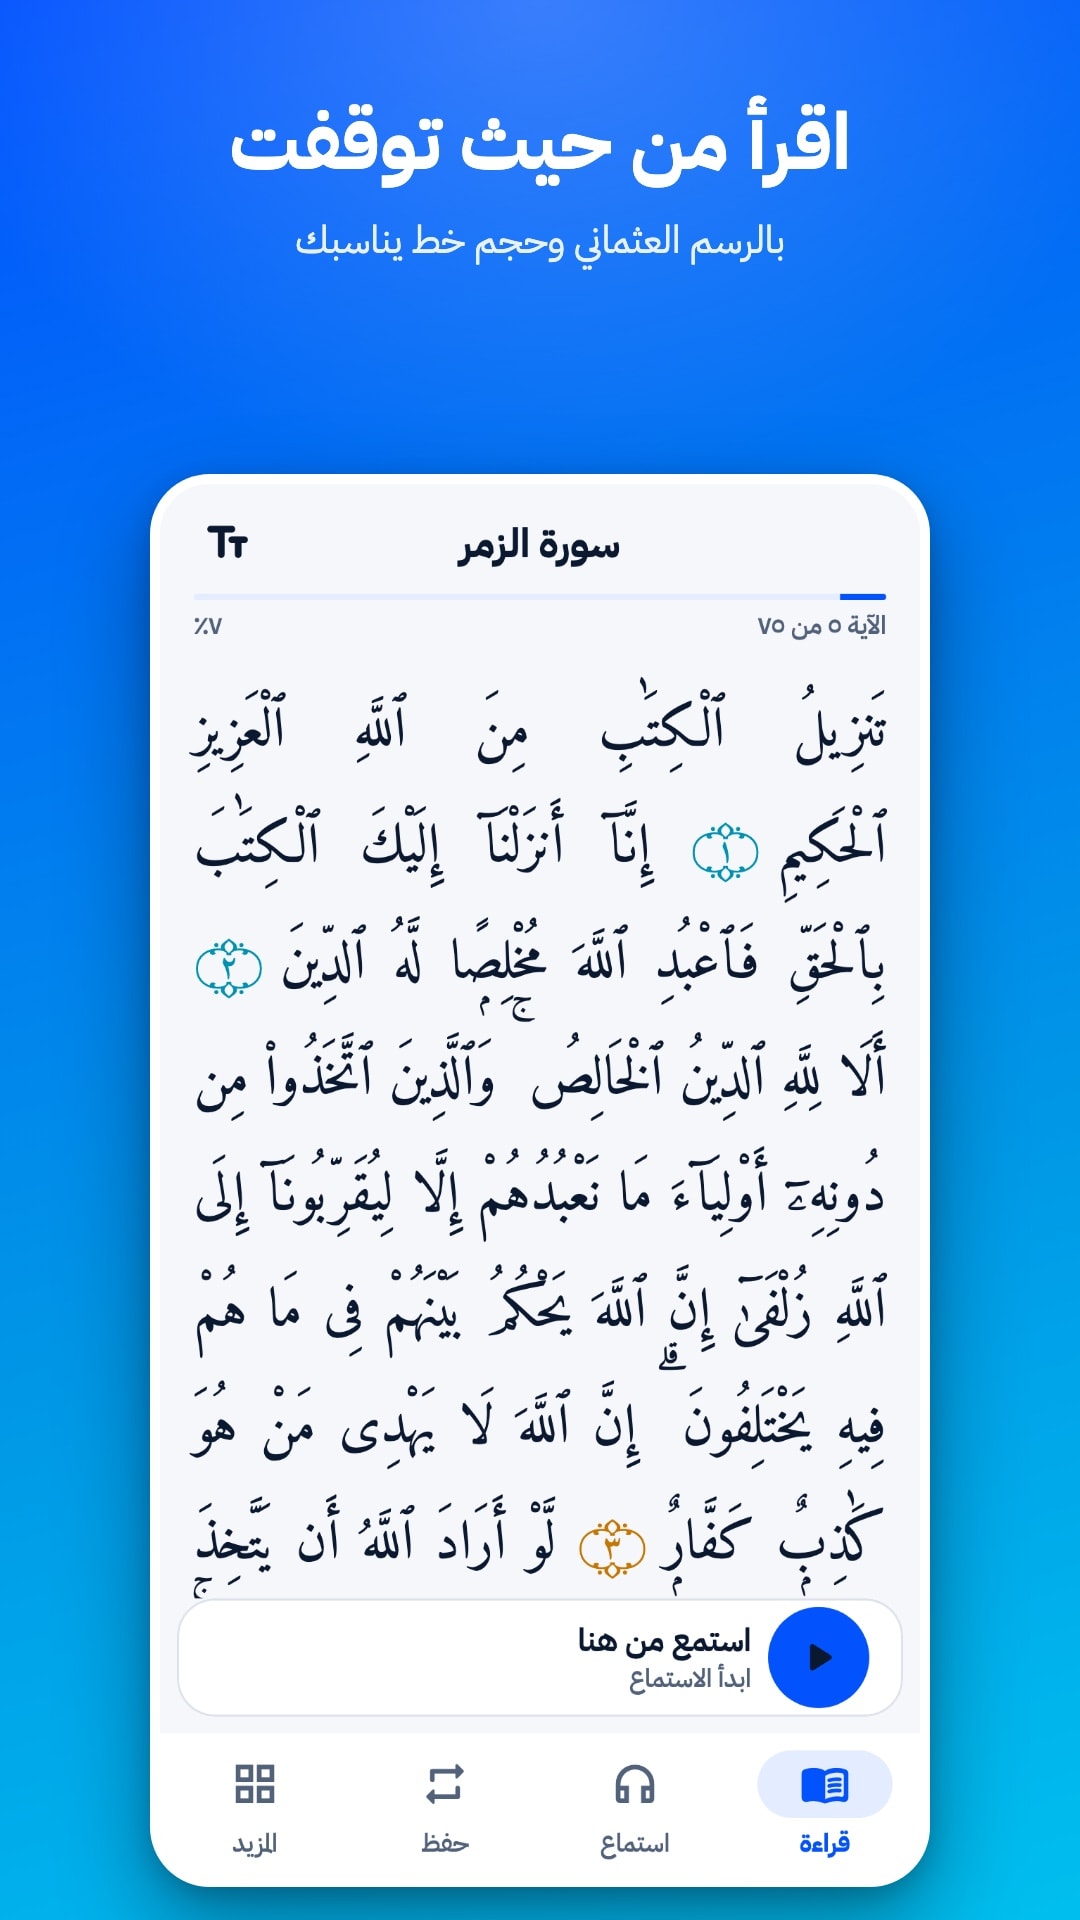 اقرأ من حيث توقفت
بالرسم العثماني وحجم خط يناسبك
سورة الزمر
الآية ٥ من ٧٥
٪٧
تَنزِيلُ ٱلْكِتَٰبِ مِنَ ٱللَّهِ ٱلْعَزِيزِ
ٱلْحَكِيمِ ١ إِنَّآ أَنزَلْنَآ إِلَيْكَ ٱلْكِتَٰبَ
بِٱلْحَقِّ فَٱعْبُدِ ٱللَّهَ مُخْلِصًۭا لَّهُ ٱلدِّينَ ٢
أَلَا لِلَّهِ ٱلدِّينُ ٱلْخَالِصُ ۚ وَٱلَّذِينَ ٱتَّخَذُوا۟ مِن
دُونِهِۦٓ أَوْلِيَآءَ مَا نَعْبُدُهُمْ إِلَّا لِيُقَرِّبُونَآ إِلَى
ٱللَّهِ زُلْفَىٰٓ إِنَّ ٱللَّهَ يَحْكُمُ بَيْنَهُمْ فِى مَا هُمْ
فِيهِ يَخْتَلِفُونَ ۗ إِنَّ ٱللَّهَ لَا يَهْدِى مَنْ هُوَ
كَٰذِبٌۭ كَفَّارٌۭ ٣ لَّوْ أَرَادَ ٱللَّهُ أَن يَتَّخِذَ
استمع من هنا
ابدأ الاستماع
قراءة
استماع
حفظ
المزيد